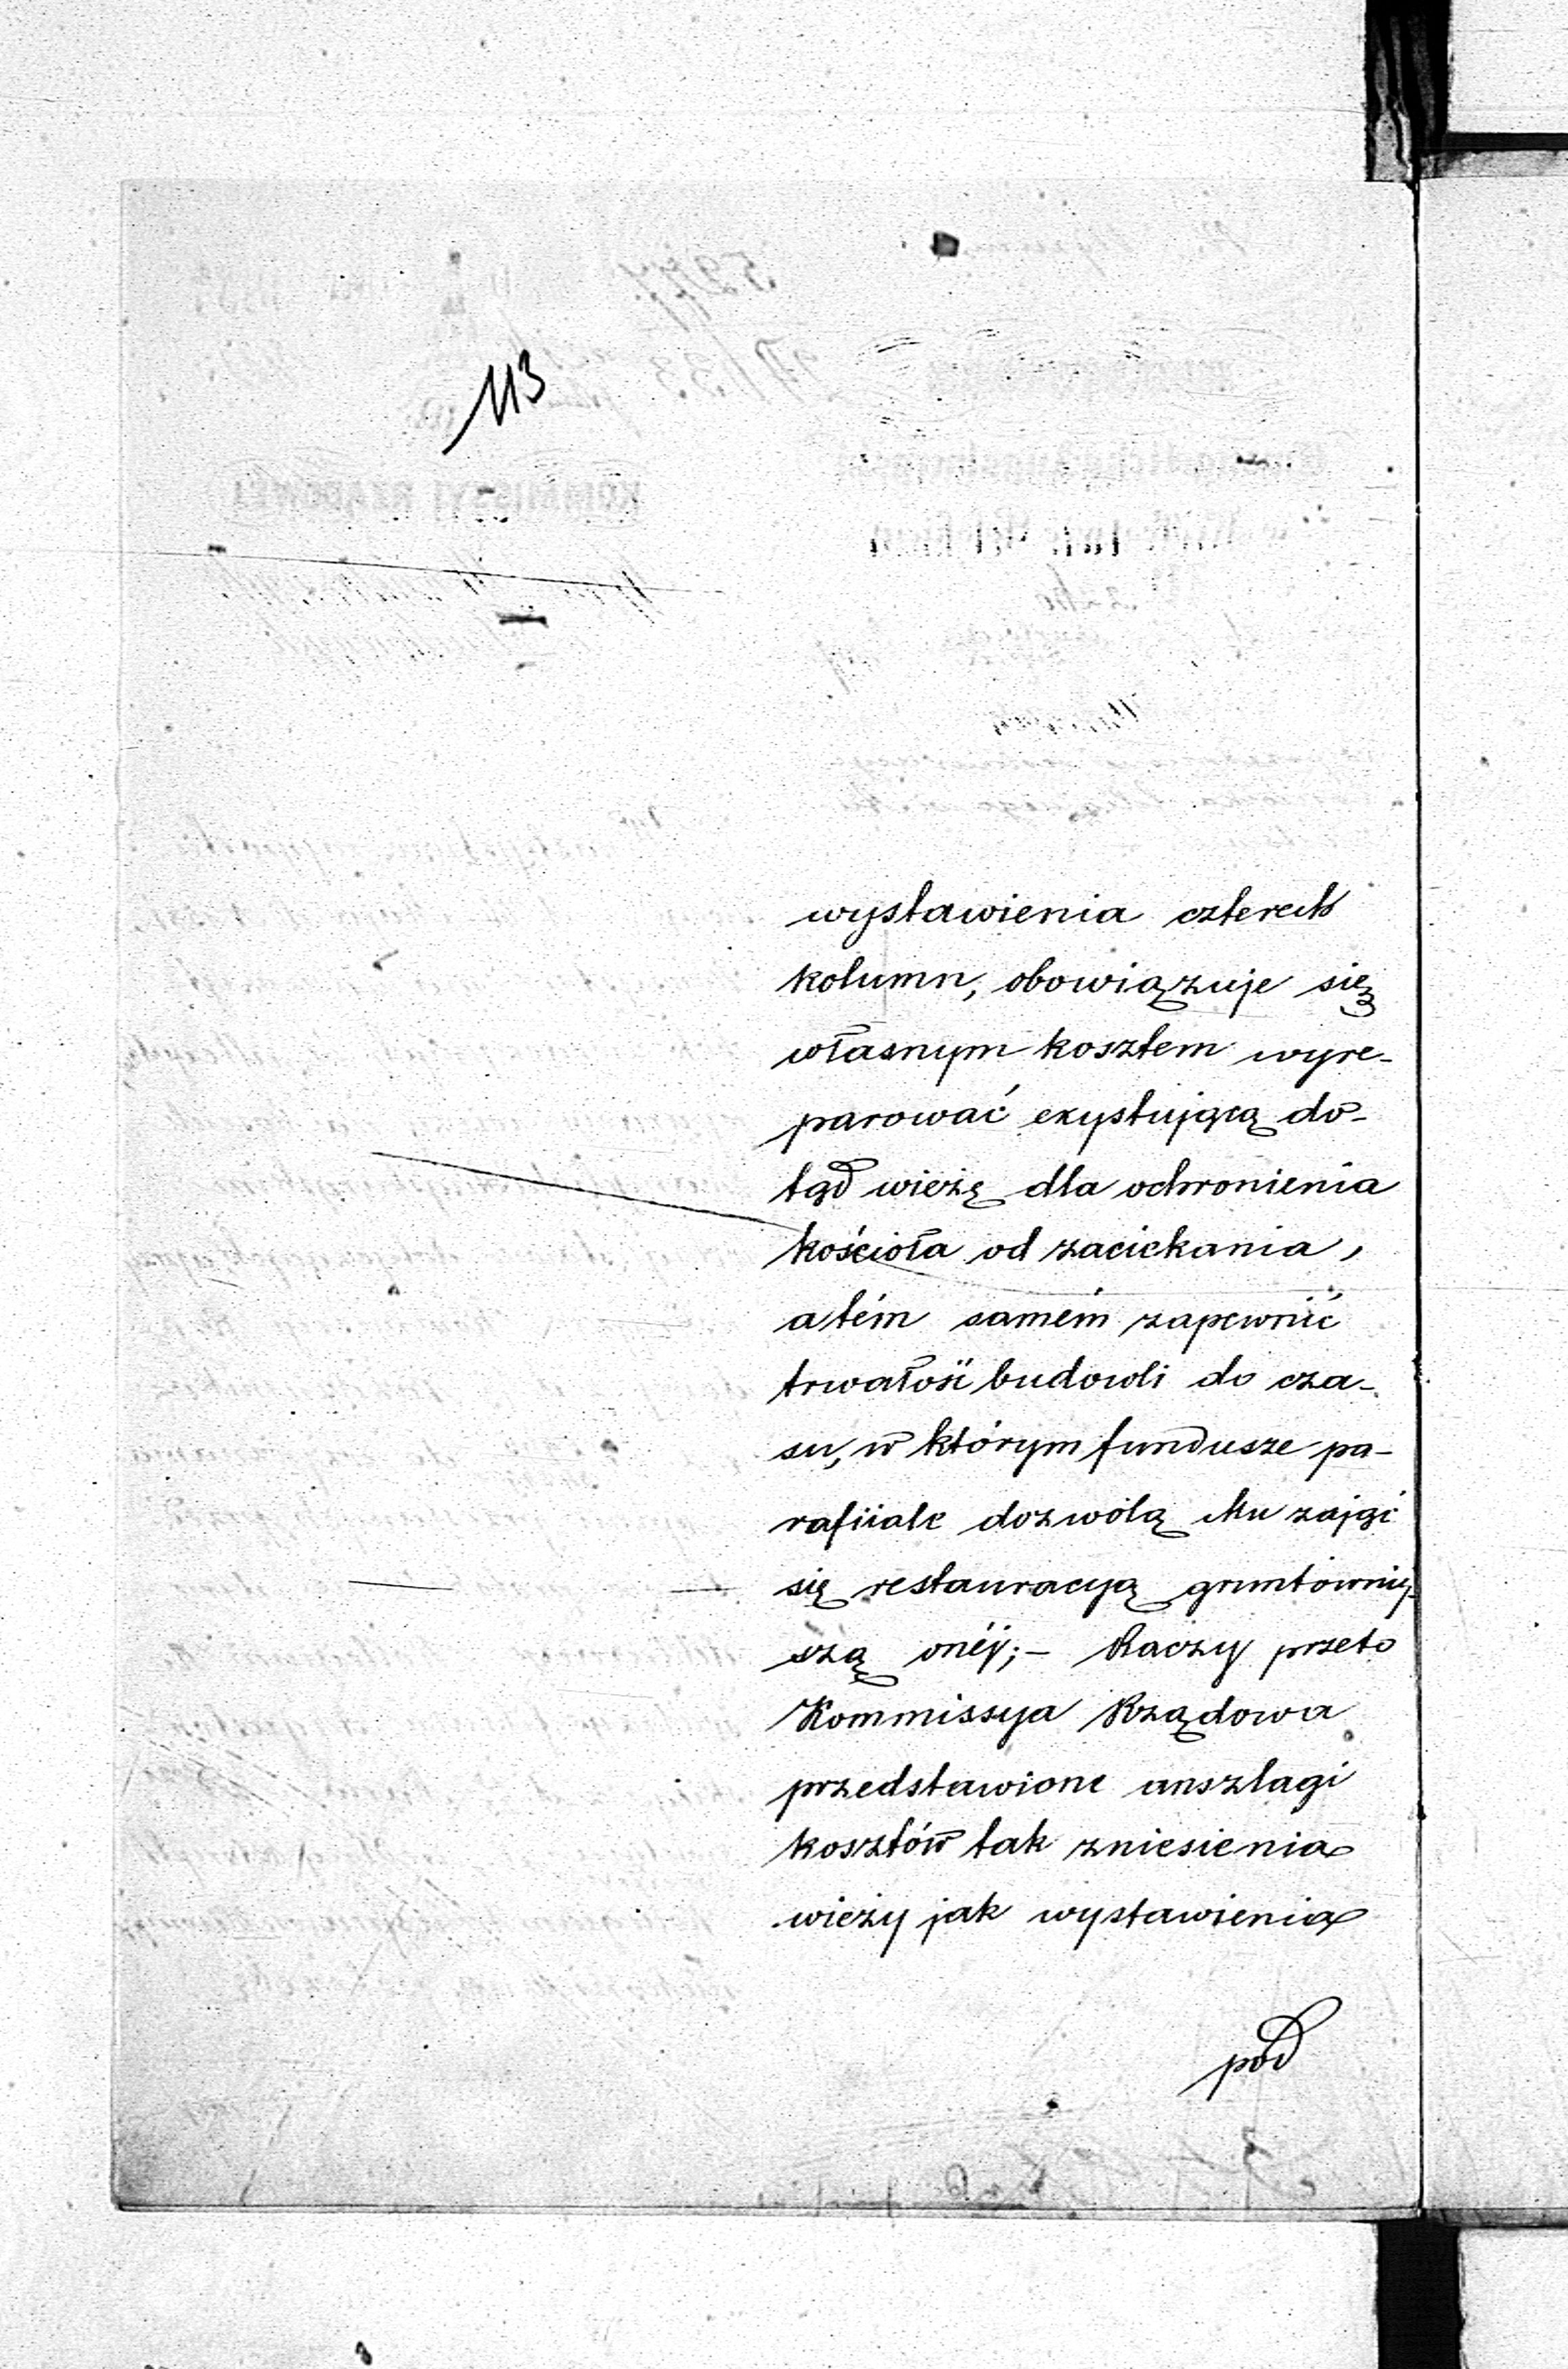 113
wystawienia czterech
kolumn, obowiązuje się
własnym kosztem wyre-
parować exystującą do-
tąd wieżę dla ochronienia
kościoła od zaciekania,
a tém samém zapewnić
trwałość budowli do cza-
su, w którym fundusze pa-
rafiiale dozwolą Mu zająć
się restauracyą gruntowniéj-
szą onéj; - Raczy przeto
Kommissya Rządowa
przedstawione anszlagi
kosztów tak zniesienia
wieży jak wystawienia
pod